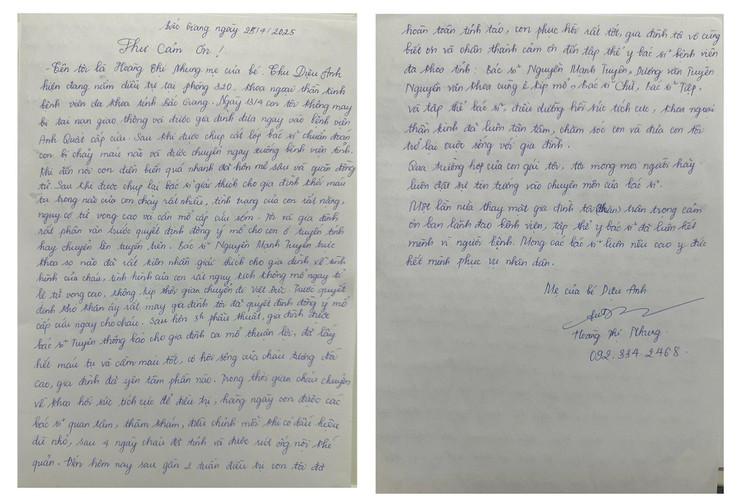 Bắc Giang ngày 25/4/2025
Thư Cảm Ơn!
- Tên tôi là Hoàng Thị Nhung mẹ của bé Chu Diệu Anh
hiện đang nằm điều trị tại phòng 320, khoa ngoại thần kinh
bệnh viện đa khoa tỉnh Bắc Giang. Ngày 13/4 con tôi không may
bị tai nạn giao thông và được gia đình đưa ngay vào bệnh viện
Anh Quất cấp cứu. Sau khi được chụp cắt lớp bác sĩ chuẩn đoán
con bị chảy máu não và được chuyển ngay xuống bệnh viện tỉnh.
Khi đến nơi con diễn biến quá nhanh đã hôn mê sâu và quên động
tử. Sau khi được chụp lại bác sĩ giải thích cho gia đình khối máu
tụ trong não của con chảy rất nhiều, tình trạng của con rất nặng,
nguy cơ tử vong cao và cần mổ cấp cứu sớm. Tôi và gia đình
rất phân vân trước quyết định đồng ý mổ cho con ở tuyến tỉnh
hay chuyển lên tuyến trên. Bác sĩ Nguyễn Mạnh Tuyên trực
khoa sọ não đã rất kiên nhẫn giải thích cho gia đình về tình
hình của cháu, tình hình của con rất nguy kịch không mổ ngay tỉ
lệ tử vong cao, không kịp thời gian chuyển đi Việt Đức. Trước quyết
định khó khăn ấy rất may gia đình tôi đã quyết định đồng ý mổ
cấp cứu ngay cho cháu. Sau hơn 3h phẫu thuật, gia đình được
bác sĩ Tuyên thông báo cho gia đình ca mổ thuận lợi, đã lấy
hết máu tụ và cầm máu tốt, cơ hội sống của cháu tương đối
cao, gia đình đã yên tâm phần nào. Trong thời gian cháu chuyển
về khoa hồi sức tích cực để điều trị, hàng ngày con được các
bác sĩ quan tâm, thăm khám, điều chỉnh mỗi khi có dấu hiệu
dù nhỏ, sau 4 ngày cháu đã tỉnh và được rút ống nội khí
quản. Đến hôm nay sau gần 2 tuần điều trị con tôi đã
hoàn toàn tỉnh táo, con phục hồi rất tốt, gia đình tôi vô cùng
biết ơn và chân thành cảm ơn đến tập thể y bác sĩ bệnh viện
đa khoa tỉnh: Bác sĩ Nguyễn Mạnh Tuyên, Dương Văn Tuyên
Nguyễn Văn Khoa cùng ê kíp mổ, bác sĩ Chử, bác sĩ Tiệp,
và tập thể bác sĩ, điều dưỡng hồi sức tích cực, khoa ngoại
thần kinh đã luôn tận tâm, chăm sóc con và đưa con tôi
trở lại cuộc sống với gia đình.
Qua trường hợp của con gái tôi, tôi mong mọi người hãy
luôn đặt sự tin tưởng vào chuyên môn của bác sĩ.
Một lần nữa thay mặt gia đình tôi (chân) trân trọng cảm
ơn ban lãnh đạo bệnh viện, tập thể y bác sĩ đã luôn hết
mình vì người bệnh. Mong các bác sĩ luôn nêu cao y đức
hết mình phục vụ nhân dân.
Mẹ của bé Diệu Anh
Hoàng Thị Nhung
092.334.2468